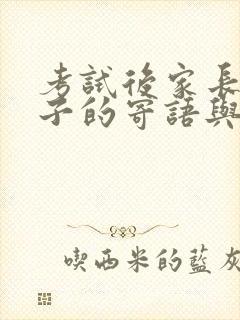 考試後家長
子的寄語與
喫西米的藍灰